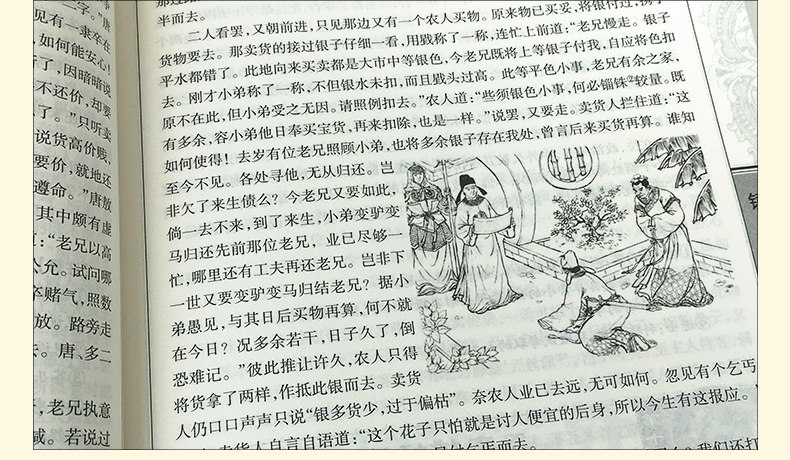 半而去。
二人看罢，又朝前进，只见那边又有一个农人买物。原来物已买妥，将银付过，携了
货物要去。那卖货的接过银子仔细一看，用戥称了一称，连忙上前道：“老兄慢走。银子
平水都错了。此地向来买卖都是大市中等银色，今老兄既将上等银子付我，自应将色扣
去。刚才小弟称了一称，不但银水未扣，而且戥头过高。此等平色小事，老兄有余之家，
原不在此，但小弟受之无因。请照例扣去。”农人道：“些须银色小事，何必锱铢②较量。既
有多余，容小弟他日奉买宝货，再来扣除，也是一样。”说罢，又要走。卖货人拦住道：“这
如何使得！去岁有位老兄照顾小弟，也将多余银子存在我处，曾言后来买货再算。谁知
至今不见。各处寻他，无从归还。岂
非欠了来生债么？今老兄又要如此，
倘一去不来，到了来生，小弟变驴变
马归还先前那位老兄，业已尽够一
忙，哪里还有工夫再还老兄。岂非下
一世又要变驴变马归结老兄？据小
弟愚见，与其日后买物再算，何不就
在今日？况多余若干，日子久了，倒
恐难记。”彼此推让许久，农人只得
将货拿了两样，作抵此银而去。卖货
人仍口口声声只说“银多货少，过于偏枯”。奈农人业已去远，无可如何。忽见有个乞丐
卖货人自言自语道：“这个花子只怕就是讨人便宜的后身，所以今生有这报应。”
二字。”唐
见有一隶卒在
，如何能安心！
了，因暗暗说
不还价，却要
了。”只听卖
说货高价贱、
要价，就地还
遵命。”唐敖
其中颇有虚
：“老兄以高
公允。试问哪
卒赌气，照数
放。路旁走
去。唐、多二
，老兄执意
减。若说过